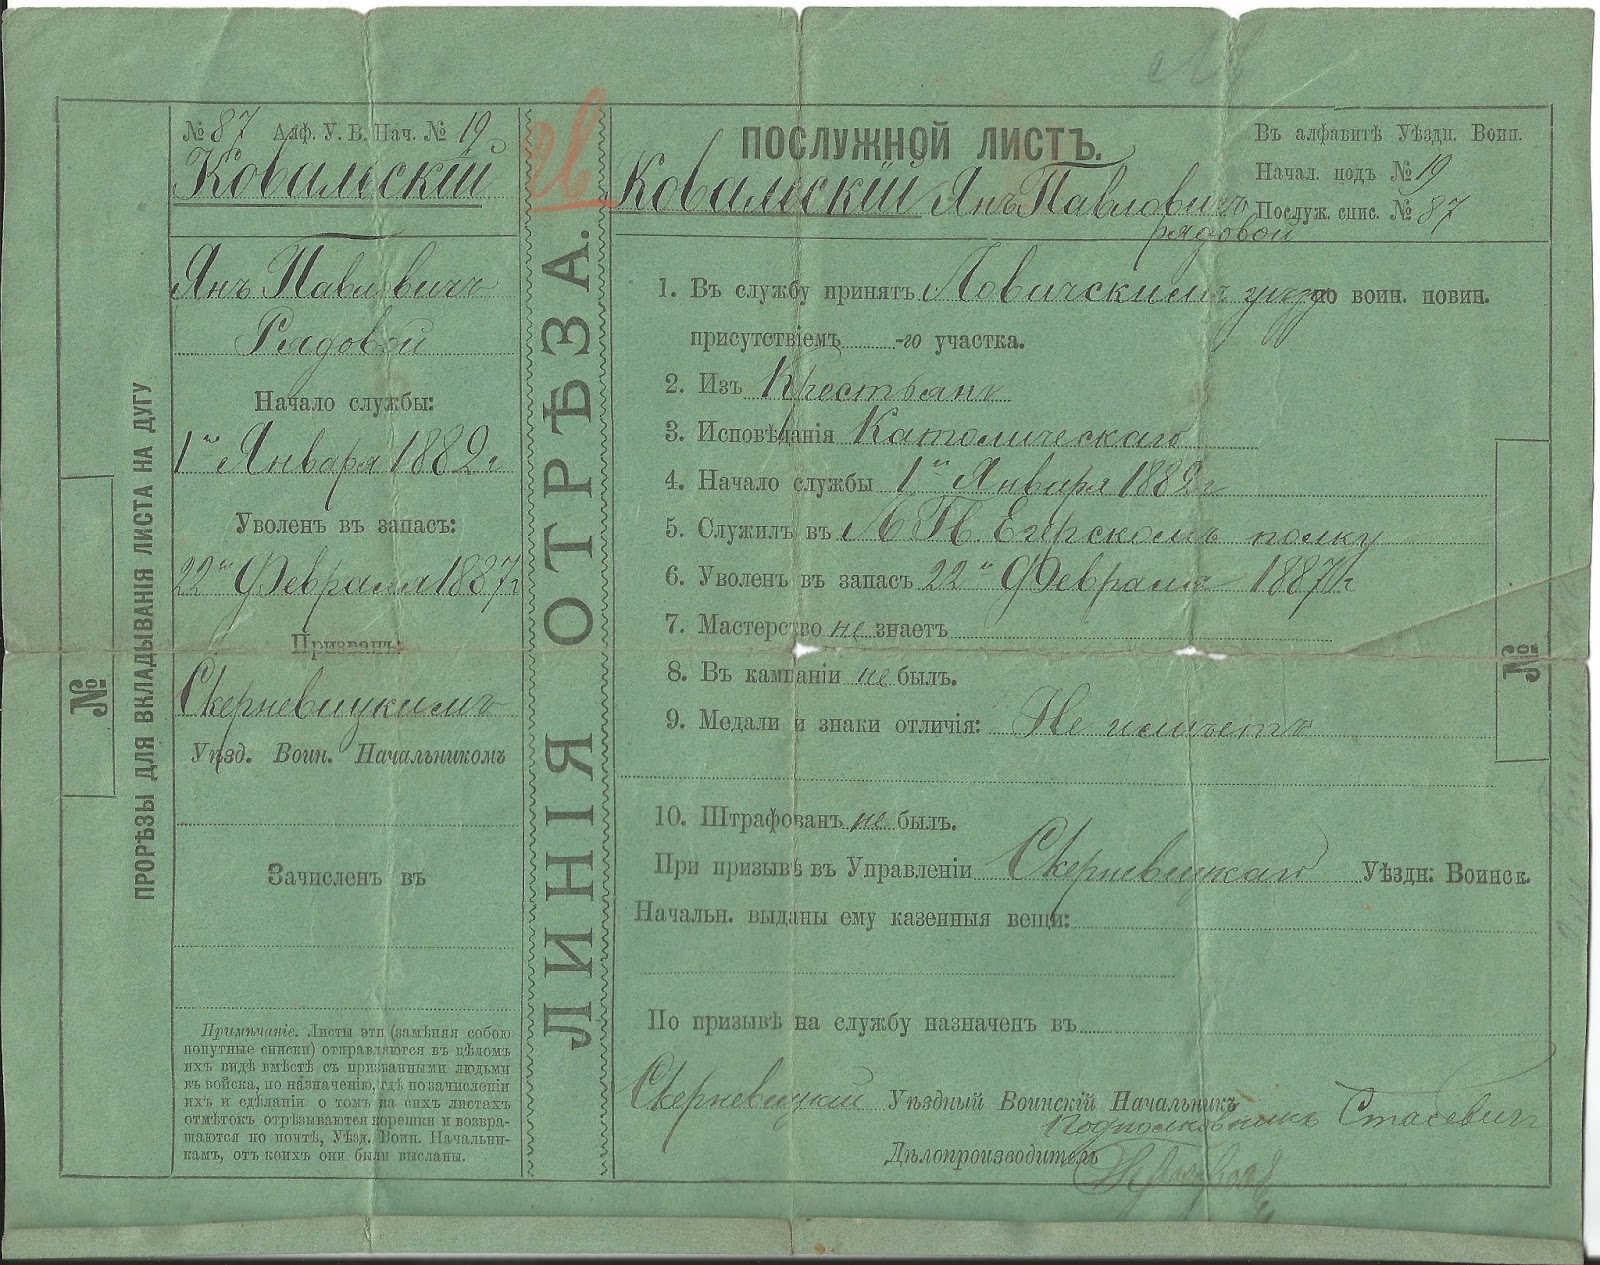 № 87 Алф. У. В. Нач. № 19
Ковальскій
Янъ Павловичъ
Рядовой
Начало службы:
1го Января 1882 г
Уволенъ въ запасъ:
22го Февраля 1887 г
Призванъ:
Скерневицкимъ
Уѣзд. Воин. Начальникомъ
Зачисленъ въ
Примѣчаніе. Листы эти (замѣняя собою
попутные списки) отправляются въ цѣломъ
ихъ видѣ вмѣстѣ съ призванными людьми
въ войска, по назначенію, гдѣ по зачисленіи
ихъ и сдѣланіи о томъ на сихъ листахъ
отмѣтокъ отрѣзываются корешки и возвра-
щаются по почтѣ, Уѣзд. Воин. Начальни-
камъ, отъ коихъ они были высланы.
№
ПРОРѢЗЫ ДЛЯ ВКЛАДЫВАНІЯ ЛИСТА НА ДУГУ
ЛИНІЯ ОТРѢЗА.
ПОСЛУЖНОЙ ЛИСТЪ.
Въ алфавитѣ Уѣздн. Воин.
Начал. подъ № 19
Послуж. спис. № 87
Ковальскій Янъ Павловичъ
рядовой
1. Въ службу принятъ Ловичскимъ по воин. повин.
присутствіемъ -го участка.
2. Изъ Крестьянъ
3. Исповѣданія Католическаго
4. Начало службы 1го Января 1882 г
5. Служилъ въ Л Гв. Егерскомъ полку
6. Уволенъ въ запасъ 22го Февраля 1887 г
7. Мастерство не знаетъ
8. Въ кампаніи не былъ.
9. Медали и знаки отличія: Не имѣетъ
10. Штрафованъ не былъ.
При призывѣ въ Управленіи Скерневицкаго Уѣздн: Воинск.
Начальн. выданы ему казенныя вещи:
По призывѣ на службу назначенъ въ
Скерневицкій Уѣздный Воинскій Начальникъ
Подполковникъ Стасевичъ
Дѣлопроизводитель
№